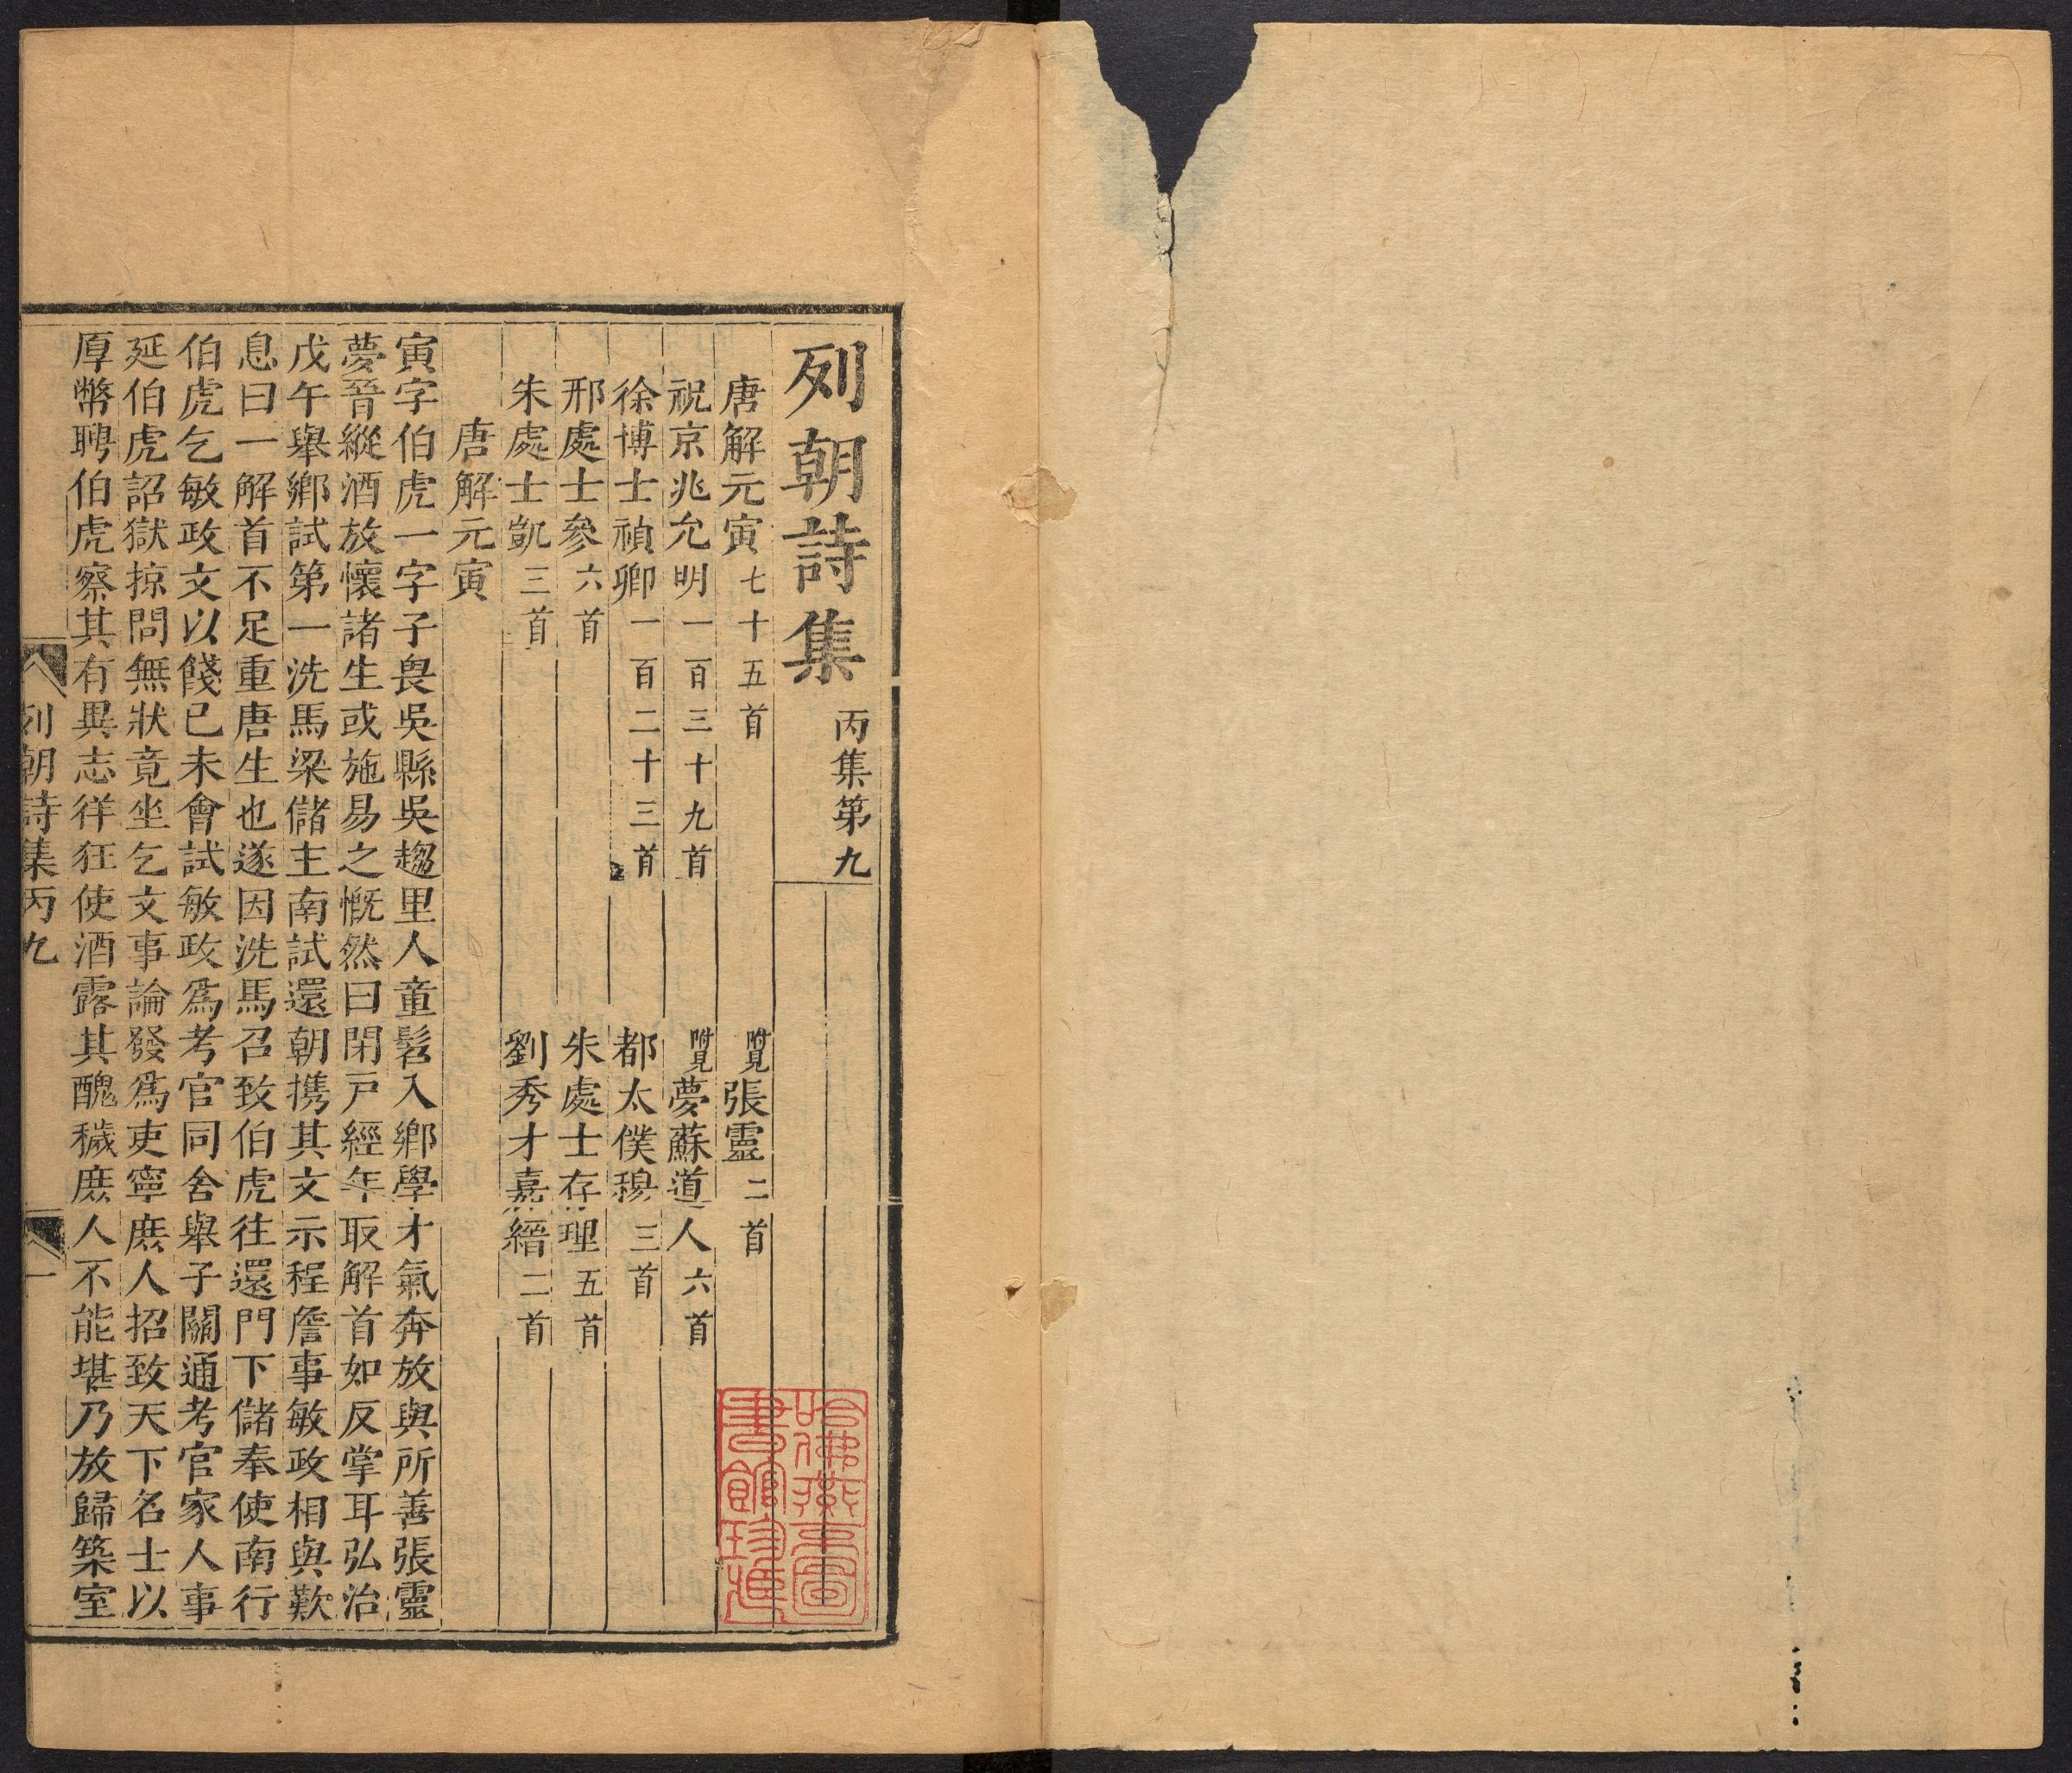 列朝詩集 丙集第九
唐解元寅 七十五首 附見 張靈 二首
祝京兆允明 一百三十九首 附見 夢蘇道人 六首
徐博士禎卿 一百二十三首 都太僕穆 三首
邢處士參 六首 朱處士存理 五首
朱處士凱 三首 劉秀才嘉𦅸 二首
唐解元寅
寅字伯虎一字子畏吳縣吳趨里人童髫入鄉學才氣奔放與所善張靈
夢晉縱酒放懷諸生或施易之慨然曰閉戶經年取解首如反掌耳弘治
戊午舉鄉試第一洗馬梁儲主南試還朝携其文示程詹事敏政相與歎
息曰一解首不足重唐生也遂因洗馬召致伯虎往還門下儲奉使南行
伯虎乞敏政文以餞己未會試敏政爲考官同舍舉子關通考官家人事
延伯虎詔獄掠問無狀竟坐乞文事論發爲吏寧庶人招致天下名士以
厚幣聘伯虎察其有異志徉狂使酒露其醜穢庶人不能堪乃放歸築室
列朝詩集丙九 一
哈佛燕京圖
書館珍藏